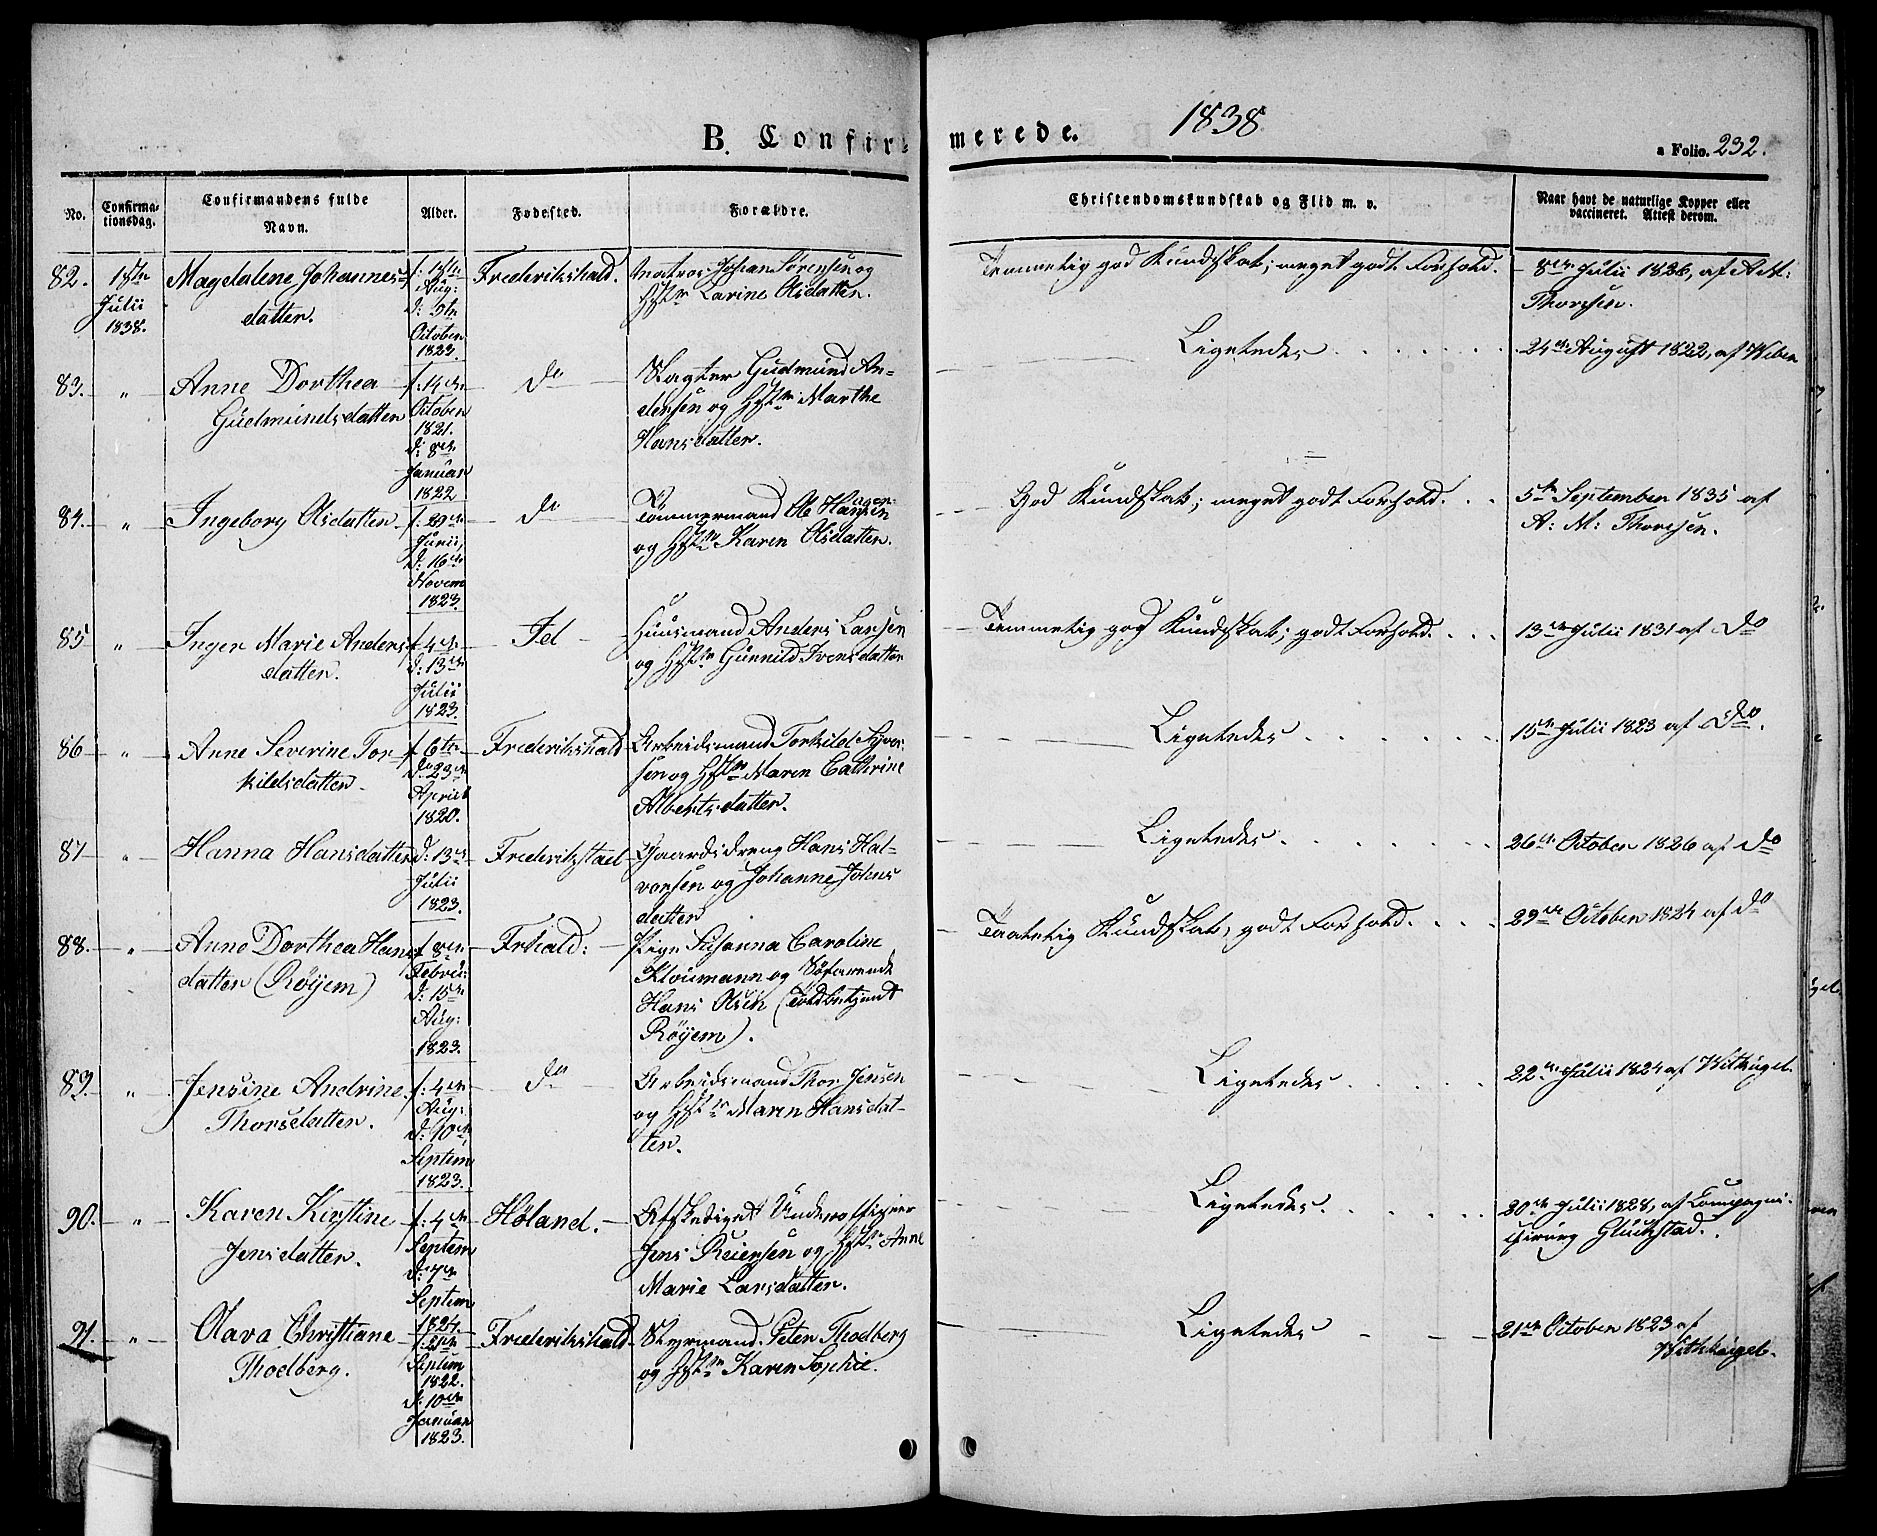 B. Confir-
merede.
1838
a Folio. 232.
No.
Confirma-
tionsdag.
Confirmandens fulde
Navn.
Alder.
Fødested.
Forældre.
Christendomskundskab og Flid m. v.
Naar havt de naturlige Kopper eller
vaccineret. Attest derom.
82. 18de
Julii
1838.
Magdalene Johannes-
datter.
f: 18de
Aug:
d: 5te
October
1823.
Frederikshald.
Matros Johan Sørensen og
Hstr Larine Olsdatter.
Temmelig god Kundskab; meget godt Forhold.
8de Julii 1826, af A M:
Thoresen.
83. "
Anne Dorthea
Gudmundsdatter
f: 14de
October
1821.
d: 8de
Januar
1822
do
Slagter Gudmund An-
dersen og Hstr Marthe
Hansdatter.
Ligeledes
24de August 1822, af Weben
84. "
Ingeborg Olsdatter
f: 29de
Junii,
d: 16de
Novem
1823.
do
Tømmermand Ole Hansen
og Hstr Karen Olsdatter.
God Kundskab; meget godt Forhold.
5te September 1835 af
A: M: Thoresen.
85 "
Inger Marie Anders
datter.
f. 4de
d: 13de
Julii
1823.
Id
Huusmand Anders Larsen
og Hstr Gunnild Iversdatter
Temmelig god Kundskab; godt Forhold.
13de Julii 1831 af do
86 "
Anne Severine Tor-
kildsdatter
f 6te
d: 23de
April
1820.
Frederikshald
Arbeidsmand Torkild Syver-
sen og Hstr Maren Cathrine
Alberts datter.
Ligeledes
15de Julii 1823 af do.
87 "
Hanna Hansdatter
d: 13de
Julii
1823.
Frederikstad
Gaardsdreng Hans Hal-
vorsen og Johanne Johns
datter
Ligeledes
26de October 1826 af do
88. "
Anne Dorthea Hans
datter (Røyem)
f 8de
Febru:
d: 15de
Aug:
1823.
Frhald:
Pige Susanna Caroline
Kloumann og Søfarende
Hans Olsen (Toldbetjent
Røyem).
Taalelig Kundskab, godt Forhold.
29de October 1824 af do
89. "
Jensine Andrine
Thorsdatter.
f: 4de
Aug:
d: 10de
Septem
1823.
do
Arbeidsmand Thor Jensen
og Hstr Maren Hansdat-
ter.
Ligeledes
22de Julii 1824 af Withügel.
90. "
Karen Kirstine
Jensdatter.
f: 4de
Septem
d: 7de
Septem
1824.
Høland.
Afskediget Underofficier
Jens Reiersen og Hstr Anne
Marie Larsdatter.
Ligeledes
20de Julii 1828, af Compagni-
chirurg Glückstad.
91. "
Olava Christiane
Thodberg.
Septem
1822.
d: 10de
Januar
1823.
Frederikshald
Styrmand Peter Thodberg
og Hstr Karen Sophie.
Ligeledes
21de October 1823 af
Withhügel.